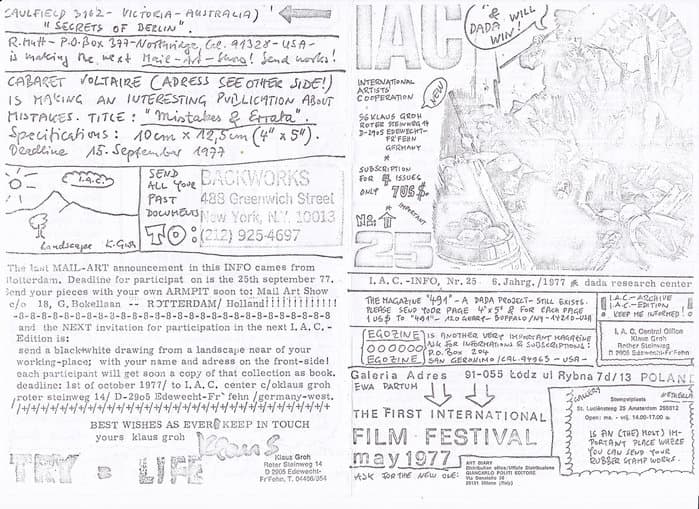 CAULFIELD 3162 - VICTORIA - AUSTRALIA)
"SECRETS OF BERLIN".
R. Mutt - P.O.Box 377 - Northridge, Cal. 91328 - USA -
is making the next Mail-Art-Show! Send works!
CABARET VOLTAIRE (ADRESS SEE OTHER SIDE!)
IS MAKING AN INTERESTING PUBLICATION ABOUT
MISTAKES. TITLE: "Mistakes & Errata".
Specifications: 10cm x 12,5cm (4" x 5").
Deadline 15. September 1977
I.A.C.
Landscape K. Groh
SEND
ALL YOUR
PAST
DOCUMENTS
TO:
BACKWORKS
488 Greenwich Street
New York, N.Y. 10013
(212) 925-4697
The last MAIL-ART announcement in this INFO cames from
Rotterdam. Deadline for participat on is the 25th september 77.
Send your pieces with your own ARMPIT soon to: Mail Art Show
c/o 18, G. Bokellaan -- ROTTERDAM/ Holland!!!!!!!!!!!!!!
-8-8-8-8-8-8-8-8-8-8-8-8-8-8-8-8-8-8-8-8-8-8-8-8-8-8-8
and the NEXT invitation for participation in the next I.A.C.-
Edition is:
send a black&white drawing from a landscape near of your
working-place; with your name and adress on the front-side!
each participant will get soon a copy of that collection as book.
deadline: 1st of october 1977/ to I.A.C. center c/oklaus groh
roter steinweg 14/ D-29o5 Edewecht-Fr' fehn /germany-west.
BEST WISHES AS EVER KEEP IN TOUCH
yours klaus groh
Klaus
Klaus Groh
Roter Steinweg 14
D 2905 Edewecht-
Fr'Fehn, T. 04486/354
LIFE
IAC
& DADA WILL
WIN!
INTERNATIONAL
ARTISTS'
COOPERATION
NEW
KLAUS GROH
ROTER STEINWEG 14
D-2905 EDEWECHT-
FR'FEHN
GERMANY
SUBSCRIPTION
FOR 4 ISSUES
ONLY 7US$.
IMPORTANT
No:
25
I.A.C.-INFO, Nr.25 6.Jahrg./1977 dada research center
THE MAGAZINE "491" - A DADA PROJECT - STILL EXISTS.
PLEASE SEND YOUR PAGE 4" x 5" & FOR EACH PAGE
1 US$ TO "491" - BUFFALO/NY - 14210 - USA
I.A.C.-ARCHIVE
I.A.C.-EDITION
KEEP ME INFORMED!
EGOZINE
OOOOOO
EGOZINE
IS ANOTHER VERY IMPORTANT MAGAZINE
ASK FOR INFORMATIONS & SUBSCRIPTIONS!
P.O. BOX 294
SAN GERONIMO/CAL-94963 - USA -
I.A.C. Central Office
Klaus Groh
Roter Steinweg
D 2905 Edewecht-Fr'Fehn
Galeria Adres 91-055 Łódz ul Rybna 7d/13 POLAN
EWA PARTUM
THE FIRST INTERNATIONAL
FILM FESTIVAL
may 1977
ASK FOR THE NEW ONE:
ART DIARY
GIANCARLO POLITI EDITORE
20131 Milano (Italy)
GALLERY
Stempelplaats
St. Luciënsteeg 25 Amsterdam
Open: ma. - vrij. 14.00-17.00 u.
IS AN (THE) MOST) IM-
PORTANT PLACE WHERE
YOU CAN SEND YOUR
RUBBER STAMP WORKS.